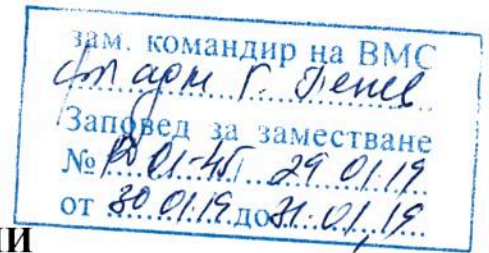 зам. командир на ВМС
фл. адм. Г. Пенев
Заповед за заместване
№ РД 01-45 29.01.19
от 30.01.19. до 31.01.19
ИИ